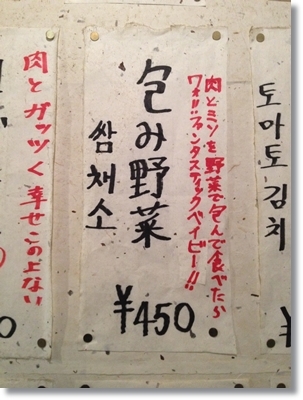 토마토김치
肉とミソを野菜で包んで食べたら
ワォ!!ファンタスティックベイビー!!
包み野菜
쌈채소
¥450
肉とガッツく幸せこの上ない